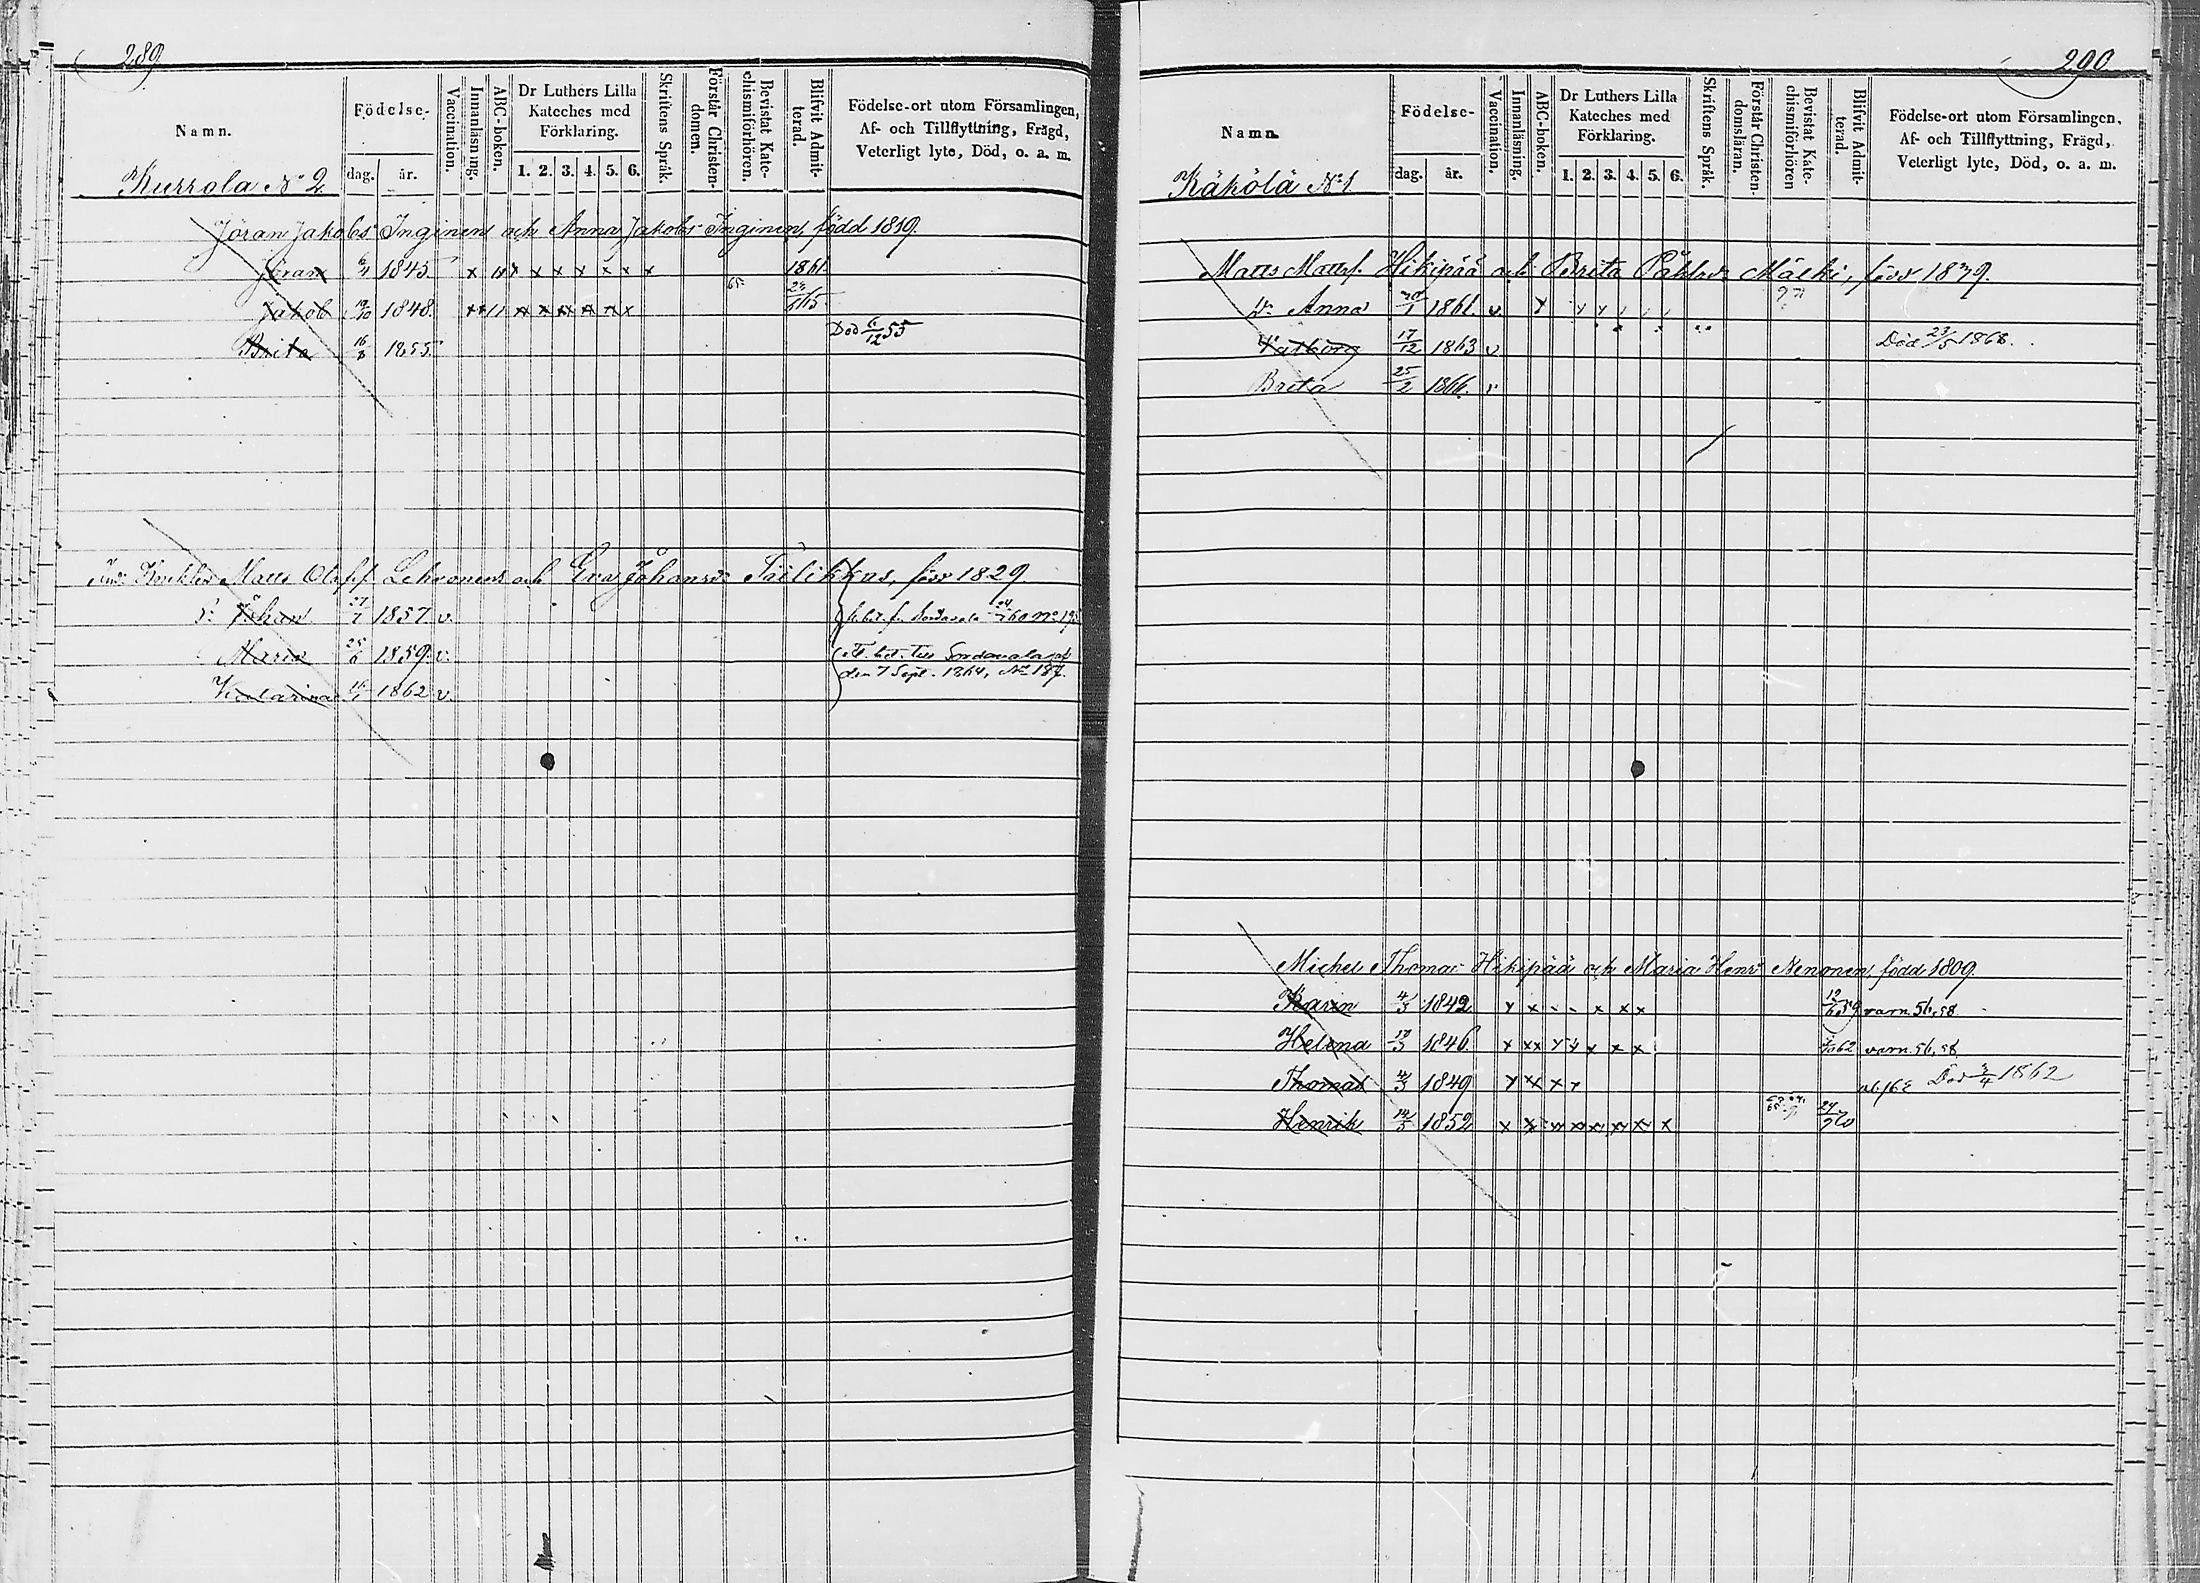 289
Namn.
Födelse-
dag. år.
Vaccination.
Innanläsning.
ABC-boken.
Dr Luthers Lilla
Kateches med
Förklaring.
1. 2. 3. 4. 5. 6.
Skriftens Språk.
Förstår Christen-
domen.
Bevistat Kate-
chismiförhören.
Blifvit Admit-
terad.
Födelse-ort utom Församlingen,
Af- och Tillflyttning, Frägd,
Veterligt lyte, Död, o. a. m.
Kurrola No 2
Jöran Jakobs Inginen och Anna Jakobs Inginen, född 1819.
Jöran 1845 1861
Jakob 19/10 1848. 65
Brita 16/8 1855. Död 6/12 55
Matts Olofsf. Lehvonens och Eva Johansd. född 1829
Johan 27/7 1857 v. Sordavala
Maria 25/6 1859. v. Sordavala
den 7 Sept. 1864, No 187.
Katarina 1862 v.
290
Namn.
Födelse-
dag. år.
Vaccination.
Innanläsning.
ABC-boken.
Dr Luthers Lilla
Kateches med
Förklaring.
1. 2. 3. 4. 5. 6.
Skriftens Språk.
Förstår Christen-
domsläran.
Bevistat Kate-
chismiförhören
Blifvit Admit-
terad.
Födelse-ort utom Församlingen,
Af- och Tillflyttning, Frägd,
Veterligt lyte, Död, o. a. m.
Käkölä No 1
Matts Mattsf. Hikipää och Brita Påhlsd. Mälki, född 1839.
Anna 1861. v
Valborg 17/12 1863 v Död 23/5 1868.
Brita 25/2 1866. v
Michel Thomas Hikipää och Maria Henrs Nenonen, född 1809
Karin 4/3 1842 12/6 59 varn. 56, 58
Helena 1846 62 varn. 56, 58
Thomas 1849 Död 3/4 1862
Henrik 14/3 1852 70